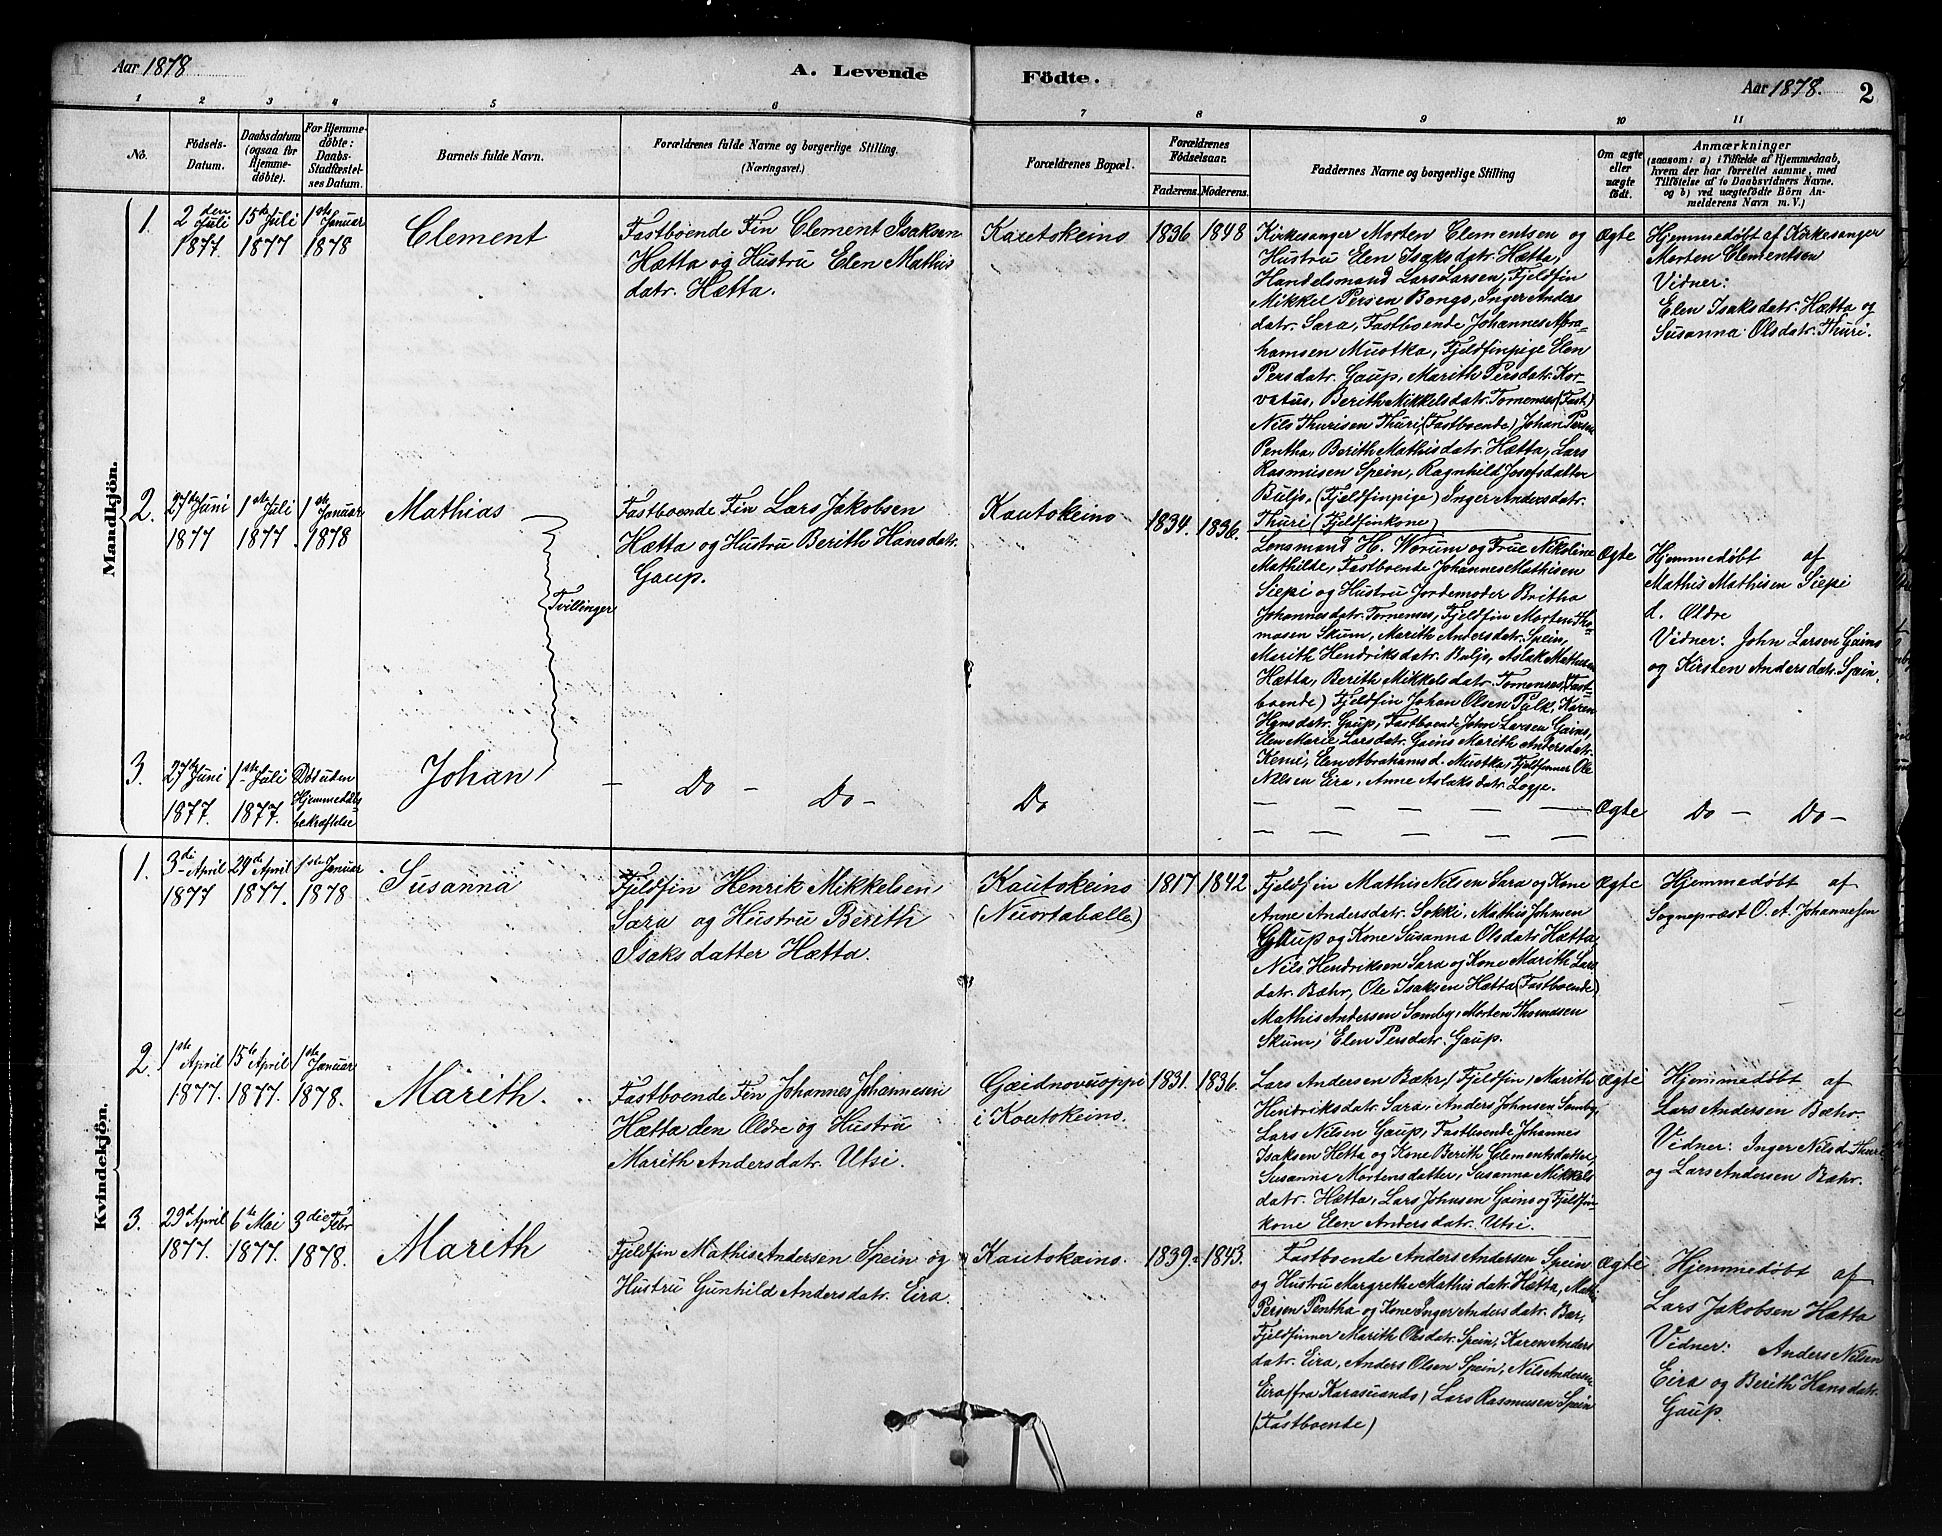 Aar 1878
A. Levende Födte.
Aar 1878. 2
1 2 3 4 5 6 7 8 9 10 11
No.
Födsels-
Datum.
Daabsdatum
(ogsaa for
Hjemme-
döbte).
For Hjemme-
døbte:
Daabs-
Stadfæstel-
ses Datum.
Barnets fulde Navn.
Forældrenes fulde Navne og borgerlige Stilling.
(Næringsvei.)
Forældrenes Bopæl.
Forældrenes
Födselsaar.
Faderens. Moderens.
Faddernes Navne og borgerlige Stilling
Om ægte
eller
uægte
födt.
Anmærkninger
(saasom: a) i Tilfælde af Hjemmedaab,
hvem der har forrettet samme, med
Tilföielse af to Daabsvidners Navne,
og b) ved uægtefödte Börn An-
melderens Navn m. V.)
Mandkjön.
1.
2den Juli
1877.
15de Juli
1877
1ste Januar
1878
Clement
Fastboende Fin Clement Isaksen
Hætta og Hustru Elen Mathis
datr. Hætta.
Kautokeino
1836. 1848
Kirkesanger Morten Clementsen og
Hustru Elen Isaksdatr. Hætta,
Handelsmand Lars Larsen, Fjeldfin
Mikkel Persen Bongo, Inger Anders
datr. Sara, Fastboende Johannes Abra-
hamsen Muotka, Fjeldfinpige Elen
Persdatr. Gaup, Marith Persdatr. Kor-
vatus, Berith Mikkelsdatr. Tornenses (Fast.)
Nils Thurisen Thuri (Fastboende), Johan Persen
Pentha, Berith Mathisdatr. Hætta, Lars
Rasmusen Spein, Ragnhild Josefsdatter
Buljo, (Fjeldfinpige) Inger Andersdatr.
Thuri (Fjeldfinkone)
Ægte
Hjemmedøbt af Kirkesanger
Morten Clementsen
Vidner:
Elen Isaksdatr. Hætta og
Susanna Olsdatr. Thuri.
2.
27de Juni
1877
1ste Juli
1877.
1ste Januar
1878
Mathias
Tvillinger
Fastboende Fin Lars Jakobsen
Hætta og Hustru Berith Hansdatr.
Gaup.
Kautokeino
1834. 1836.
Lensmand H. Worum og Frue Nikoline
Mathilde, Fastboende Johannes Mathisen
Siepi og Hustru Jordemoder Britha
Johannesdatr. Tornenses, Fjeldfin Morten Tho-
masen Skum, Marith Andersdatr. Spein,
Marith Hendriksdatr. Buljo, Aslak Mathisen
Hætta, Berith Mikkelsdatr. Tornenses (Fast-
boende) Fjeldfin Johan Olsen Pulk. Karen
Hansdatr. Gaup, Fastboende John Larsen Gains,
Elen Marie Larsdatr. Gains Marith Andersdatr.
Kemi, Elen Abrahamsd. Muotka, Fjeldfinner Ole
Nilsen Eira, Anne Aslaksdatr. Logje.
Ægte
Hjemmedøbt af
Mathis Mathisen Siepi
d. Ældre
Vidner: John Larsen Gains
og Kirsten Andersdatr. Spein.
3.
27de Juni
1877.
1ste Juli
1877.
Död uden
Hjemmedaabs
bekræftelse
Johan
- Do - Do -
Do
Ægte
Do - Do -
Kvindekjön.
1.
3di April
1877
24de April
1877.
1ste Januar
1878
Susanna
Fjeldfin Henrik Mikkelsen
Sara og Hustru Berith
Isaksdatter Hætta.
Kautokeino
(Nuortaballe)
1817. 1842
Fjeldfin Mathis Nilsen Sara og Kone
Anne Andersdatr. Sokki, Mathis Johnsen
Gaup og Kone Susanna Olsdatr. Hætta,
Nils Hendriksen Sara og Kone Marith Lars
datr. Bæhr, Ole Isaksen Hætta (Fastboende)
Mathis Andersen Somby, Morten Thomasen
Skum, Elen Persdatr. Gaup.
Ægte
Hjemmedøbt af
Sognepræst O. A. Johannesen
2.
1ste April
1877.
15de April
1877.
1ste Januar
1878.
Marith.
Fastboende Fin Johannes Johannesen
Hætta den Ældre og Hustru
Marith Andersdatr. Utsi.
Gæidnovuoppe
i Koutokeino.
1831. 1836.
Lars Andersen Bæhr, (Fjeldfin) Marith
Hendriksdatr. Sara, Anders Johnsen Somby,
Lars Nilsen Gaup, Fastboende Johannes
Isaksen Hætta og Kone Berith Clementsdatter
Susanna Mortensdatter, Susanna Mikkels
datr. Hætta, Lars Johnsen Gains og Fjeldfin-
kone Elen Andersdatr. Utsi.
Ægte
Hjemmedøbt af
Lars Andersen Bæhr.
Vidner: Inger Nilsd. Thuri
og Lars Andersen Bæhr.
3.
29d April
1877.
6te Mai
1877.
3die Febr
1878.
Marith
Fjeldfin Mathis Andersen Spein og
Hustru Gunhild Andersdatr. Eira.
Kautokeino.
1839. 1843.
Fastboende Anders Andersen Spein
og Hustru Margrethe Mathisdatr. Hætta, Math.
Persen Pentha og Kone Inger Andersdatr. Bær,
Fjeldfinner Marith Olsdatr. Spein, Karen Anders
datr. Eira, Anders Olsen Spein, Nils Andersen
Eira (fra Karasuando) Lars Rasmusen Spein
(Fastboende)
Ægte
Hjemmedøbt af
Lars Jakobsen Hætta
Vidner: Anders Nilsen
Eira og Berith Hansdatr.
Gaup.